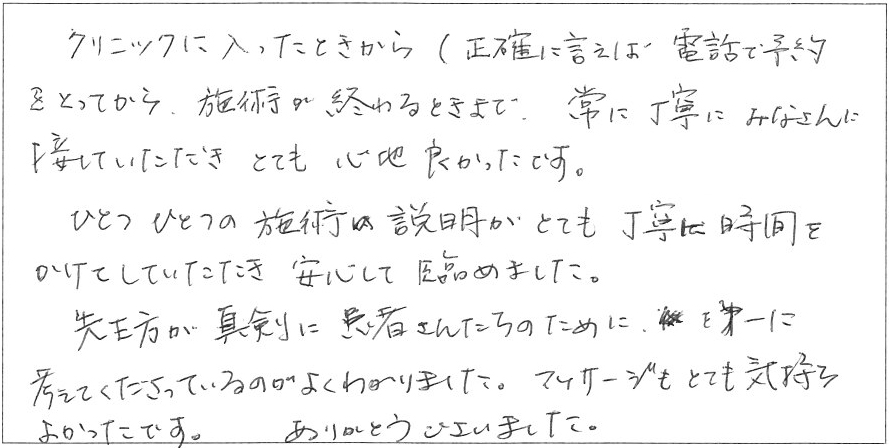 クリニックに入ったときから(正確に言えば電話で予約
をとってから、施術が終わるときまで、常に丁寧にみなさんに
接していただきとても心地良かったです。
ひとつひとつの施術の説明がとても丁寧に時間を
かけてしていただき安心して臨めました。
先生方が真剣に患者さんたちのために、を第一に
考えてくださっているのがよくわかりました。マッサージもとても気持ち
よかったです。 ありがとうございました。